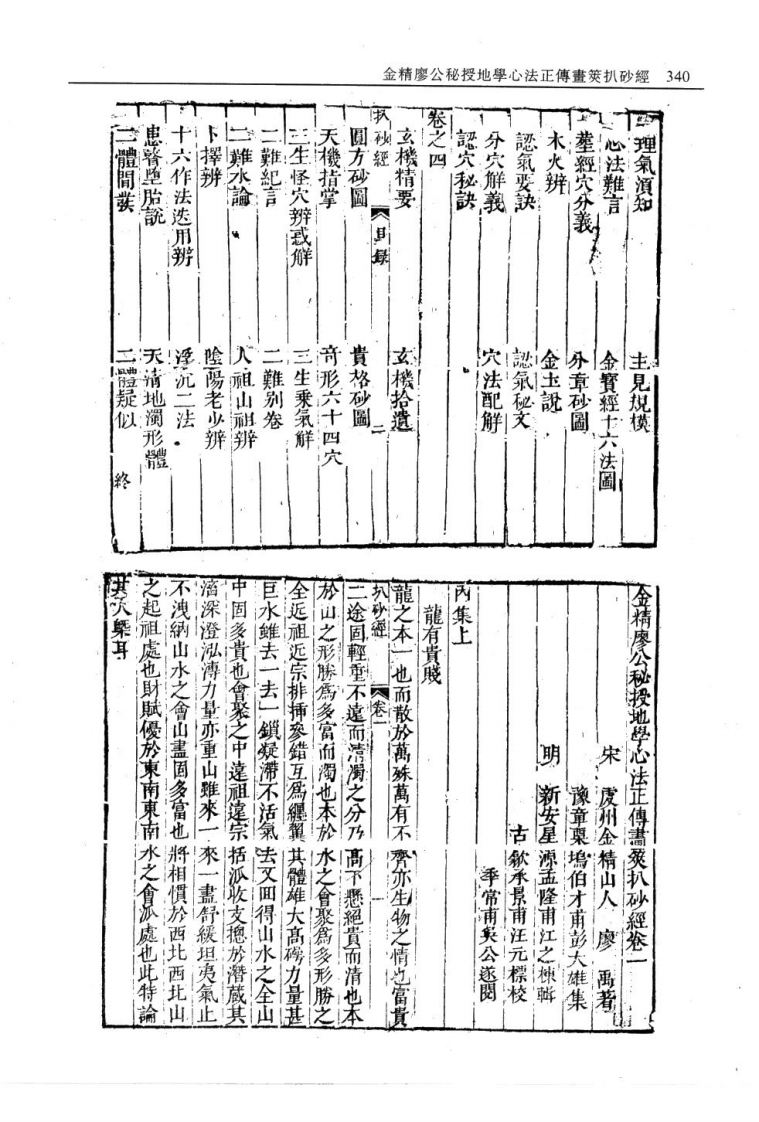 金精廖公秘授地學心法正傳畫筴扒砂經 340
理氣須知 主見規模
心法難言 金寶經十六法圖
葬經穴分義 分章砂圖
木火辨 金土說
認氣要訣 認氣砂文
分穴解義 穴法配解
認穴秘訣
卷之四
玄機精要 玄機拾遺
扒砂經 目錄 二
圓方砂圖 貴格砂圖
天機指掌 奇形六十四穴
三生怪穴辨惑解 三生乘氣解
二難紀言 二難別卷
二難水論 人祖山祖辨
卜擇辨 陰陽老少辨
十六作法迭用辨 浮沉二法
患醫墮胎說 天清地濁形體
二體間裝 二體疑似 終
金精廖公秘授地學心法正傳畫筴扒砂經卷一
宋 虔州金精山人 廖 禹著
豫章栗塢伯才甫彭大雄集
明 新安星源孟隆甫江之棟輯
古歙承景甫汪元標校
季常甫吳公遂閱
內集上
龍有貴賤
龍之本一也而散於萬殊萬有不齊亦生物之情也富貴
扒砂經 卷一
二途固輕重不遠而清濁之分乃高下懸絕貴而清也本
於山之形勝爲多富而濁也本於水之會聚爲多形勝之
全近祖近宗排揷參錯互爲纒翼其體雄大高磅力量甚
巨水雖去一去一鎖凝滯不活氣去又囬得山水之全山
中固多貴也會聚之中遠祖遠宗括派收支摠於潛蔵其
滀深澄泓溥力量亦重山雖來一來一盡舒緩坦夷氣止
不洩納山水之會山盡固多富也將相慣於西北西北山
之起祖處也財賦優於東南東南水之會派處也此特論
其大槩耳